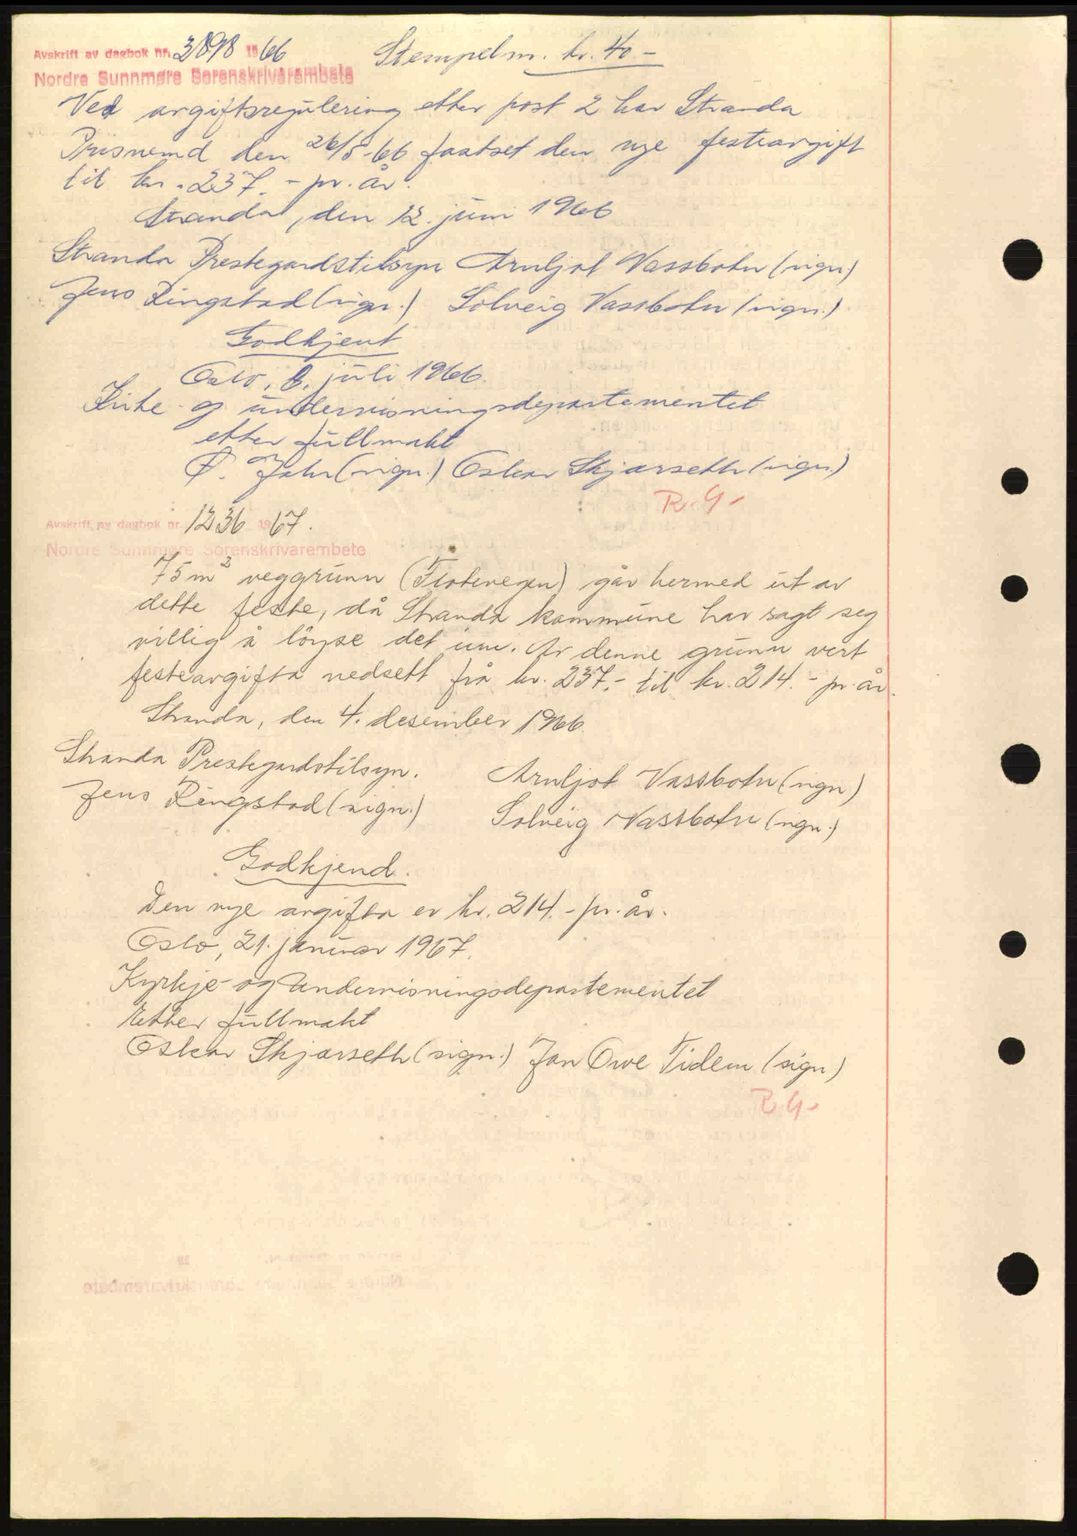 Avskrift av dagbok nr. 3898 1966 Stempelm. kr. 40.-
Nordre Sunnmøre Sorenskrivarembete
Ved avgiftsregulering etter post 2 har Stranda
Prisnemd den 26/5-66 fastset den nye festeavgift
til kr. 237.- pr. år.
Stranda, den 12. juni 1966
Stranda Prestegardstilsyn Arnljot Vassbotn (sign)
Jens Ringstad (sign.) Solveig Vassbotn (sign.)
Godkjent
Oslo, 6. juli 1966.
Kirke- og undervisningsdepartementet
etter fullmakt
Ø. Jahr (sign.) Oskar Skjærseth (sign.)
R.G.
Avskrift av dagbok nr. 1236 1967.
Nordre Sunnmøre Sorenskrivarembete
75 m² veggrunn (Flotevegen) går hermed ut av
dette feste, då Stranda kommune har sagt seg
villig å löyse det inn. Av denne grunn vert
festeavgifta nedsett frå kr. 237.- til kr. 214.- pr. år.
Stranda, den 4. desember 1966
Stranda Prestegardstilsyn. Arnljot Vassbotn (sign)
Jens Ringstad (sign.) Solveig Vassbotn (sign.)
Godkjend.
Den nye avgifta er kr. 214.- pr. år.
Oslo, 21. januar 1967.
Kyrkje- og undervisningsdepartementet
Etter fullmakt
Oskar Skjærseth (sign.) Jan Owe Tidem (sign)
R.G.